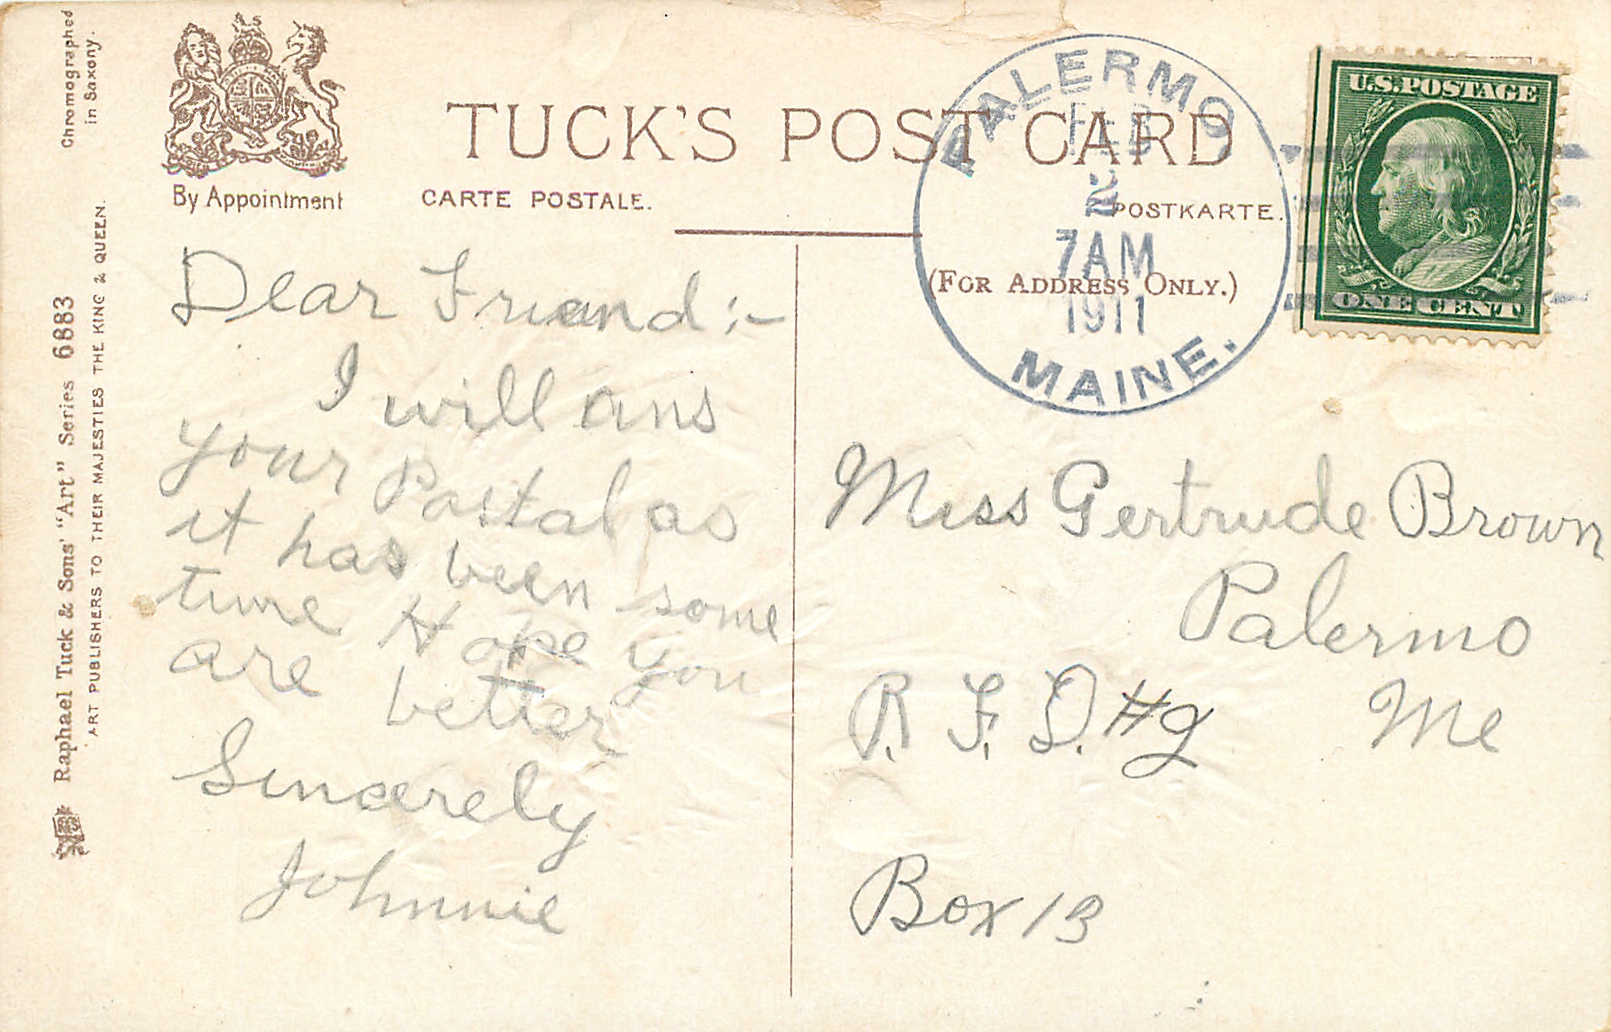 Chromographed
in Saxony.
By Appointment
TUCK'S POST CARD
CARTE POSTALE.
POSTKARTE.
(FOR ADDRESS ONLY.)
PALERMO
FEB
2
7AM
1911
MAINE.
U.S. POSTAGE
ONE CENT
Raphael Tuck & Sons' "Art" Series 6883
ART PUBLISHERS TO THEIR MAJESTIES THE KING & QUEEN.
Dear Friend :-
I will ans
your Postal as
it has been some
time Hope you
are better
Sincerely
Johnnie
Miss Gertrude Brown
Palermo
R. F. D. #2 Me
Box 13